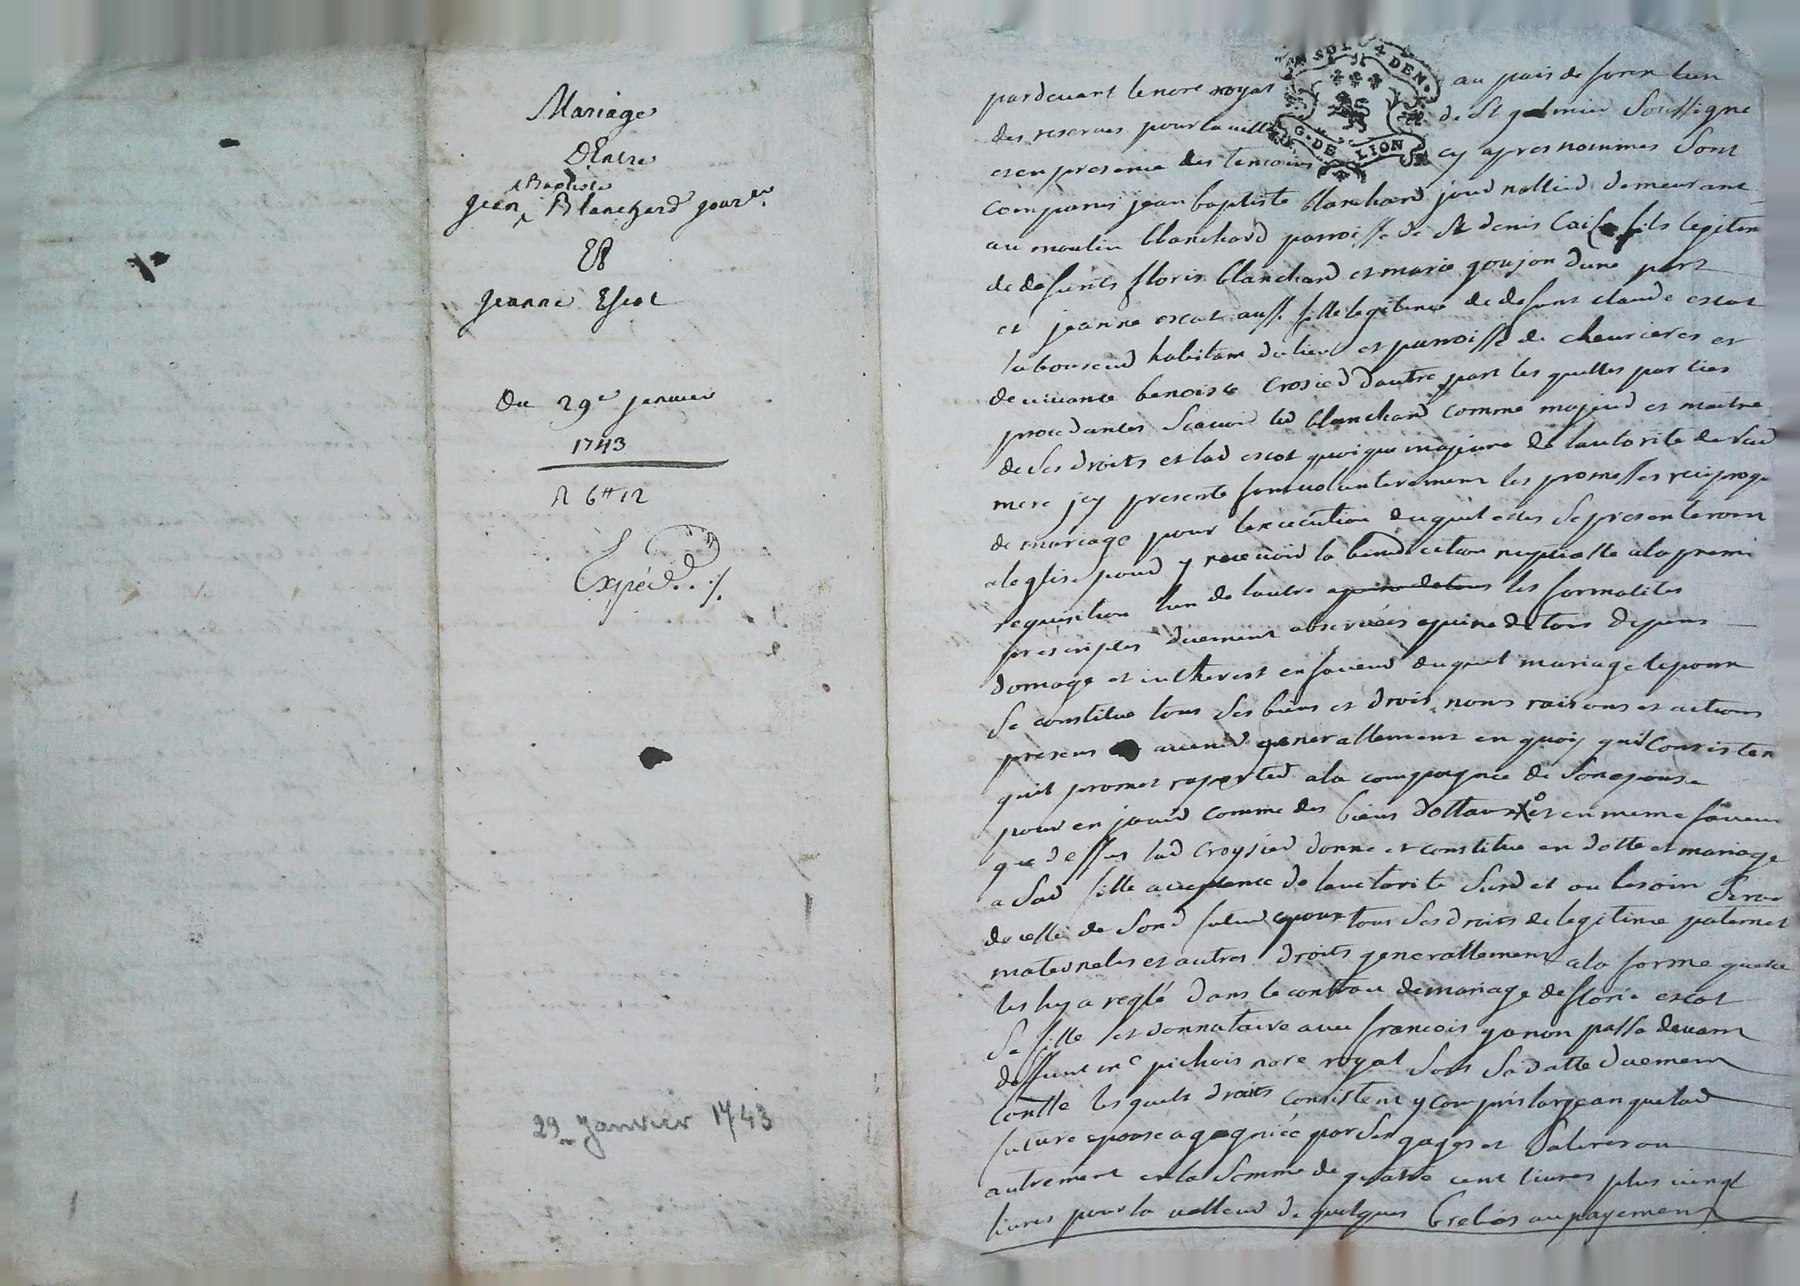 Mariage
D'Entre
Baptiste
Jean Blanchard jour.er
Et
Jeanne Escot
Du 29e janvier
1743
R 6# 12
Expéd. ./.
29 Janvier 1743
SOLS 4 DEN.
G. DE LION
pardevant le nore royal au pais de forest lun
des reserves pour la ville de St galmier Soussigne
et en presence des temoins cy apres nommes Sont
comparus jean baptiste blanchard journallier demeurant
au moulin blanchard parroisse de St denis fils legitime
de defunts floris blanchard et marie goujon dune part
et jeanne escot aussy fille legitime de defunt claude escot
laboureur habitant du lieu et parroisse de cheurieres et
de vivante benoiste Crosier d'autre part les quelles parties
procedantes Scavoir led blanchard comme majeur et maitre
de Ses droits et lad escot quoique majeure de lautorite de Sad
mere icy presente font volonterement les promesses reciproqs
de mariage pour lexecution duquel elles Se presenteront
a leglise pour y recevoir la benediction nuptialle a la premi
requisition lun de lautre a peine de tous les formalites
prescriptes duement observées a peine de tous depens
domage et intherest en faveur duquel mariage lepoux
Se constitue tous Ses biens et droits noms raisons et actions
presens avenir generallement en quoy quil Consisten
quil promet raporter a la compagnee de Son epouse
pour en jouir comme des biens dottaux et en meme faveur
que dessus lad Croysier donne et constitue en dotte et mariage
a Sad fille acceptante de lauctorite Susd et ou besoin Seroit
de celle de Sond futur epoux tous Ses droits de legitime paternel
maternels et autres droits generallement a la forme quelle
les luy a reglé dans le contrat de mariage de florie escot
Sa fille et donnataire avec francois ganon passé devant
deffunt me pichois nore royal Sous Sa datte duement
conlle les quels droits consistent y compris largean que lad
future epouse a gagniée par Ses gages et Saleres ou
autrement en la Somme de quatre cent livres plus vingt
livres pour la valleur de quelques brebies au payement